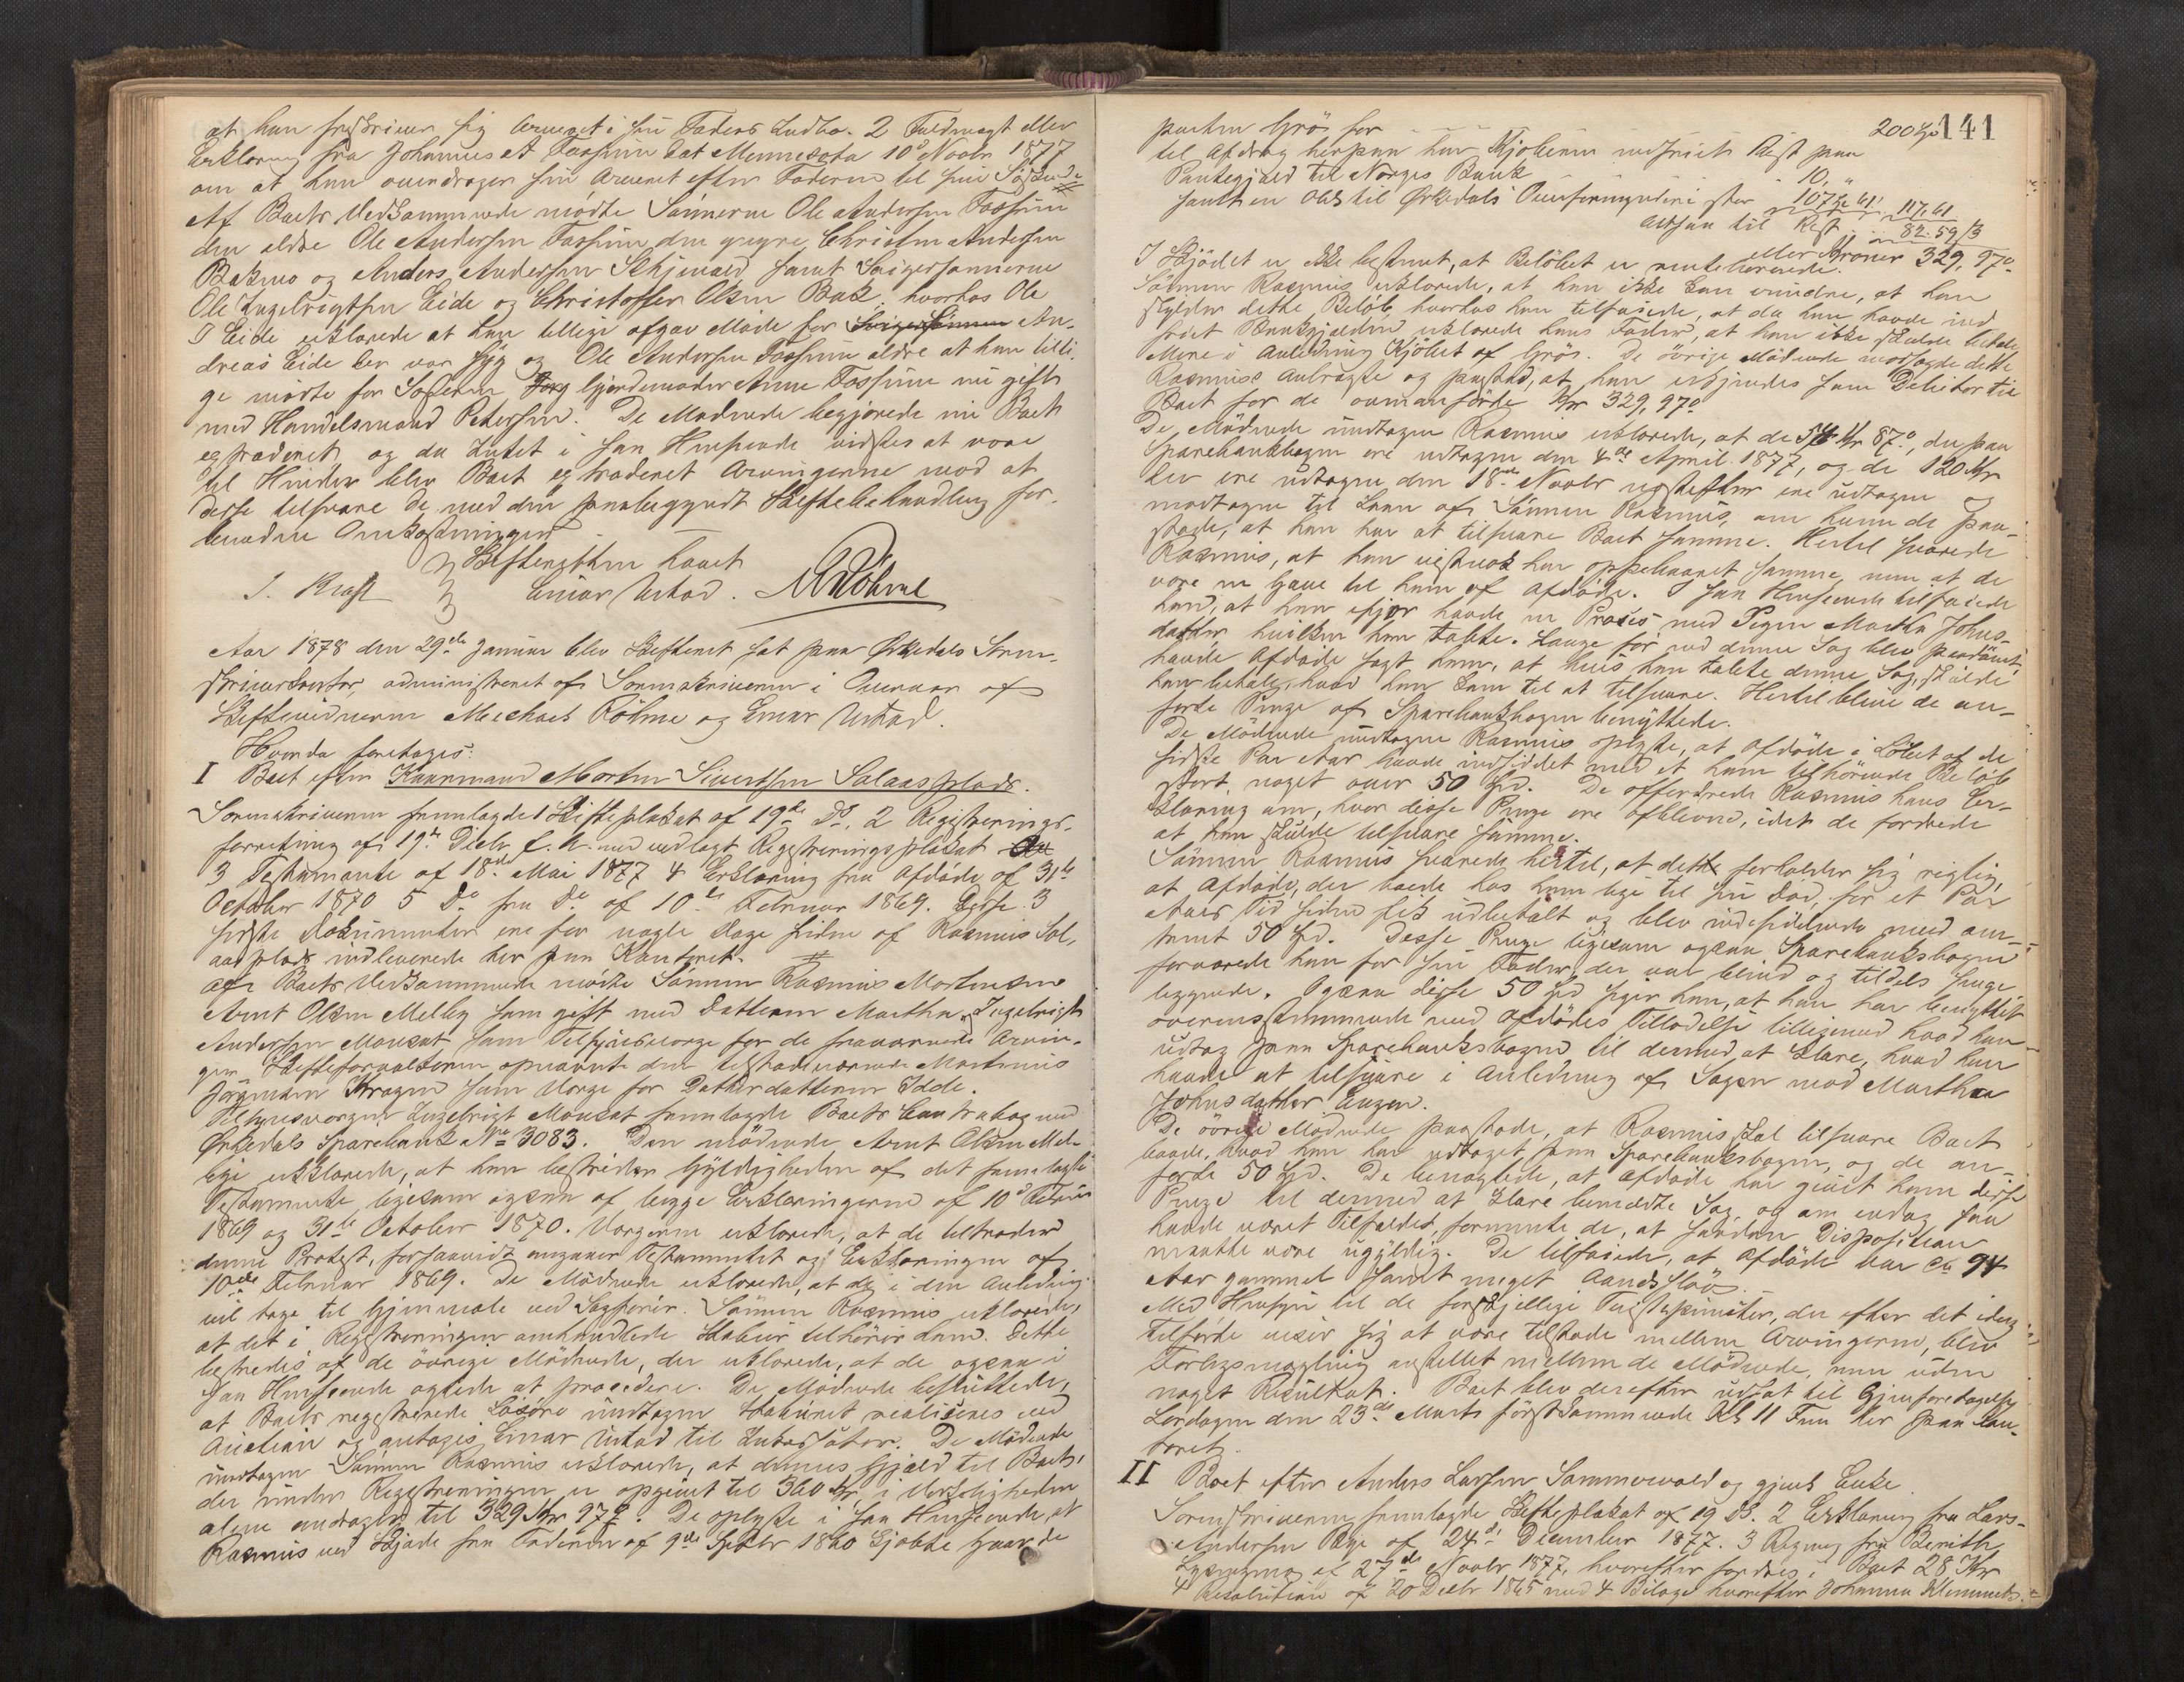 at han frskriver sig Arveret i sin Faders Indbo. 2 Fuldmagt eller
Erklæring fra Johannes A Fossum dat Mennesota 10d Novbr 1877
om at han overdrager sin Arveret efter Faderen til sine Sødskende
Af Boets Vedkommende mødte Sønnerne Ole Andersen Fossum
den ældre Ole Andersen Fossum den yngre, Christen Andersen
Bakmo og Anders Andersen Skjenald samt Svigersønnerne
Ole Ingebrigtsen Eide og Christoffer Olsen Bak. hvorhos Ole
I Eide erklærede at han tillige afgav Møde for Svigersønnen An-
dreas Eide der var syg og Ole Andersen Fossum ældre at han tilli-
ge mødte for Søsteren Gjordemoder Anne Fossum nu gift
med Handelsmand Petersen. De Mødende begjærede nu Boet
extraderet og da Intet i saa Henseende vidstes at være
til Hinder blev Boet extraderet Arvingerne mod at
disse tilsvare de med den paabegyndte Skiftebehandling for-
bundne Omkostninger
Skifteretten hævet
J. Kraft Einar Ustad. M Röhme
Aar 1878 den 29de Januar blev Skifteret sat paa Ørkedals Soren-
skriverkontor, administreret af Sorenskriveren i Overvær af
Skiftevidnerne Mechael Röhme og Einar Ustad.
Hvorda foretoges:
I Boet efter Kaarmand Morten Sivertsen Solaasplads.
Sorenskriveren fremlagde 1 Skifteplakat af 19de ds, 2 Registrerings-
forretning af 19de Decbr f. A. med vedlagt Registreringsplakat
3 Testamente af 18de Mai 1877 4 Erklæring fra Afdøde af 31te
October 1870 5 Do fra Do af 10de Februar 1869. Disse 3
sidste Dokumenter ere for nogle Dage siden af Rasmus Sol-
aasplads indleverede her paa Kontoret.
Af Boets Vedkommende mødte Sønnen Rasmus Mortensen
Arnt Olsen Melby som gift med Datteren Martha, Ingebrigt
Andersen Mouset som Tilsynsværge for de fraværende Arvin-
ger. Skifteforvalteren opnævnte den tilstedeværende Martinus
Jørgensen Kragen som Værge for Datterdatteren Odde.
Tilsynsværgen Ingebrigt Mouset fremlagde Boets Contrabog med
Ørkedals Sparebank No 3083. Den mødende Arnt Olsen Mel-
bye erklærede, at han bestrider Gyldigheden af det fremlagte
Testamente, ligesom ogsaa af begge Erklæringerne af 10d Februar
1869 og 31te October 1870. Værgerne erklærede, at de tiltræder
denne Protest, forsaavidt angaaer Testamentet og Erklæringen af
10de Februar 1869. De Mødende erklærede, at de i den Anledning
vil tage til Gjenmæle ved Sagfører. Sønnen Rasmus erklærede,
at det i Registreringen omhandlede Skabuir tilhører ham. Dette
bestredes af de øvrige Mødende, der erklærede, at de ogsaa i
saa Henseende agtede at procedere. De Mødende besluttede,
at Boets registrerede Løsøre undtagen Stabuiret realiseres ved
Auction og antoges Einar Ustad til Inkassator. De Mødende
undtagen Sønnen Rasmus erklærede, at dennes Gjæld til Boet,
der under Registreringen er opgivet til 360 Kr i Virkeligheden
alene andrager til 329 Kr 97 ø. De oplyste i saa Henseende, at
Rasmus ved Skjøde fra Faderen af 9de Septbr 1860 kjøbte Gaarde
141
parten Grøs for 200 Spd
til Afdrag herpaa har Kjøberen indfriet Rest paa
Pantegjæld til Norges Bank 10, "
samt en Obl. til Ørkedals Overformynderi stor 107 24 61 117, 61
altsaa til Rest 82. 59 ß
eller Kroner 329, 97 ø
I Skjødet er ikke bestemt, at Beløbet er rentebærende.
Sønnen Rasmus erklærede, at han ikke kan erindre, at han
skylder dette Beløb, hvorhos han tilføiede, at da han havde ind-
friet Bankgjælden erklærede hans Fader, at han ikke skulde betale
Mere i Anledning Kjøbet af Grøs. De øvrige Mødende modsagde dette
Rasmuss Anbragte og paastod, at han erkjendes som Debitor til
Boet for de ovenanførte Kr 329, 97 ø
De Mødende undtagen Rasmus erklærede, at de 54 Kr 87 ø, der paa
Sparebankbogen ere udtagne den 4de April 1877, og de 120 Kr
der ere udtagne den 18de Novbr næstefter ere udtagne og
modtagne til Laan af Sønnen Rasmus, om hvem de paa-
stode, at han har at tilsvare Boet samme. Hertil svarede
Rasmus, at han vistnok har oppebaaret samme, men at de
vare en Gave til ham af Afdøde. I saa Henseende tilføiede
han, at han ifjor havde en Proces med Pigen Martha Johns-
datter hvilken han tabte. Længe før end denne Sag blev paadømt,
havde Afdøde sagt ham, at hvis han tabte denne Sag, skulde
han betale, hvad han kom til at tilsvare. Hertil bleve de an-
førte Penge af Sparebankbogen benyttede.
De Mødende undtagen Rasmus oplyste, at Afdøde i Løbet af de
sidste Par Aar havde indsiddet med et ham tilhørende Beløb
stort, noget over 50 Spd. De opfordrede Rasmus hans Er-
klæring om, hvor disse Penge ere afblevne, idet de fordrede
at han skulde tilsvare samme.
Sønnen Rasmus svarede hertil, at dette forholder sig rigtig,
at Afdøde, der boede hos ham lige til sin Død, for et Par
Aars Tid siden fik udbetalt og blev indesiddende med om-
trent 50 Spd. Disse Penge ligesom ogsaa Sparebanksbogen
forvarede han for sin Fader, der var blind og tildels senge-
liggende. Ogsaa disse 50 Spd siger han, at han har benyttet
overensstemmende med Afdødes Tilladelse tilligemed hvad han
udtog paa Sparebanksbogen til dermed, at klare, hvad han
havde at tilsvare i Anledning af Sagen mod Martha
Johnsdatter Engen.
De øvrige Mødende paastode, at Rasmus skal tilsvare Boet
baade, hvad han har udtaget paa Sparebanksbogen, og de an-
førte 50 Spd. De benegtede, at Afdøde har givet ham disse
Penge til dermed at klare bemeldte Sag, og om endog saa
havde været Tilfældet, formente de, at saadan Disposition
maatte være ugyldig. De tilføiede, at Afdøde var ca 94
Aar gammel samt meget Aandssløv.
Med Hensyn til de forskjellige Tvistepunkter, der efter det idag
Tilførte viser sig at være tilstede mellem Arvingerne, blev
Forligsmægling anstillet mellem de Mødende, men uden
noget Resultat. Boet blev derefter udsat til Gjenforetagelse
Lørdagen den 23de Marts førstkommende Kl 11 Fm her paa Kon-
toret.
II Boet efter Anders Larsen Sommervold og gjenl Enke
Sorenskriveren fremlagde Skifteplakat af 19 ds. 2 Erklæring fra Lars
Andersen Rye af 24d December 1877. 3 Regning fra Berith
af 27de Novbr 1877, hvorefter fordres i Boet 28 Kr
4 Resolution af 20 Decbr 1865 med 4 Bilage hvorefter Johanna Klemmets-